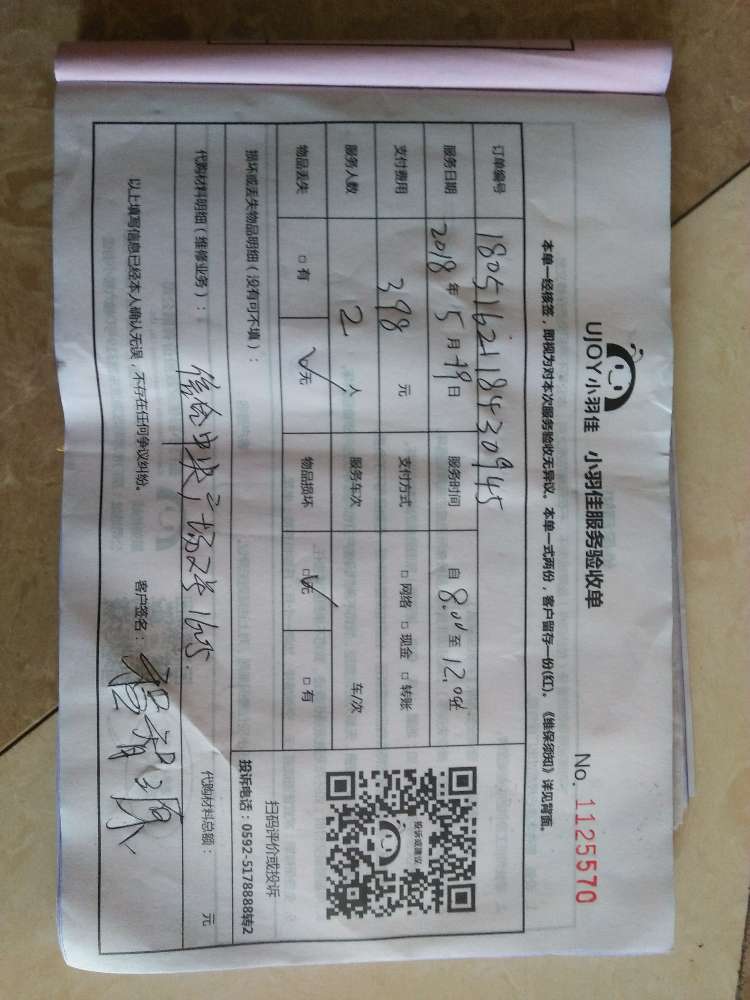 UJOY小羽佳 小羽佳服务验收单
No. 1125570
本单一经核签，即视为对本次服务验收无异议。本单一式两份，客户留存一份(红)。《维保须知》详见背面。
订单编号 1805162118430945
服务日期 2018年5月19日 服务时间 自8.00至12.00
支付费用 398元 支付方式 □网络 □现金 □转账
服务人数 2人 服务车次 车/次
物品丢失 □有 ☑无 物品损坏 ☑无 □有
投诉或建议
扫码评价或投诉
投诉电话：0592-5178888转2
损坏或丢失物品明细（没有可不填）：
代购材料明细（维修业务）： 代购材料总额： 元
中央广场2号
以上填写信息已经本人确认无误，不存在任何争议纠纷。 客户签名：